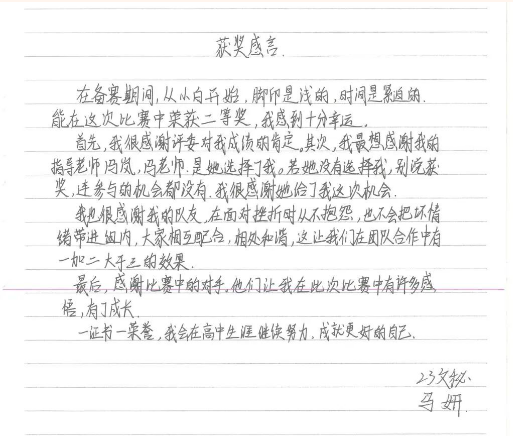 获奖感言.
在备赛期间,从小白开始,脚印是浅的,时间是紧迫的.
能在这次比赛中荣获二等奖,我感到十分幸运。
首先,我很感谢评委对我成绩的肯定。其次,我最想感谢我的
指导老师冯岚,冯老师.是她选择了我,若她没有选择我,别说获
奖,连参与的机会都没有.我很感谢她给了我这次机会.
我也很感谢我的队友,在面对挫折时从不抱怨,也不会把坏情
绪带进组内,大家相互配合,相处和谐,这让我们在团队合作中有
一加二大于三的效果.
最后,感谢比赛中的对手,他们让我在此次比赛中有许多感
悟,有了成长.
一证书一荣誉,我会在高中生涯继续努力.成就更好的自己.
23文秘
马妍.